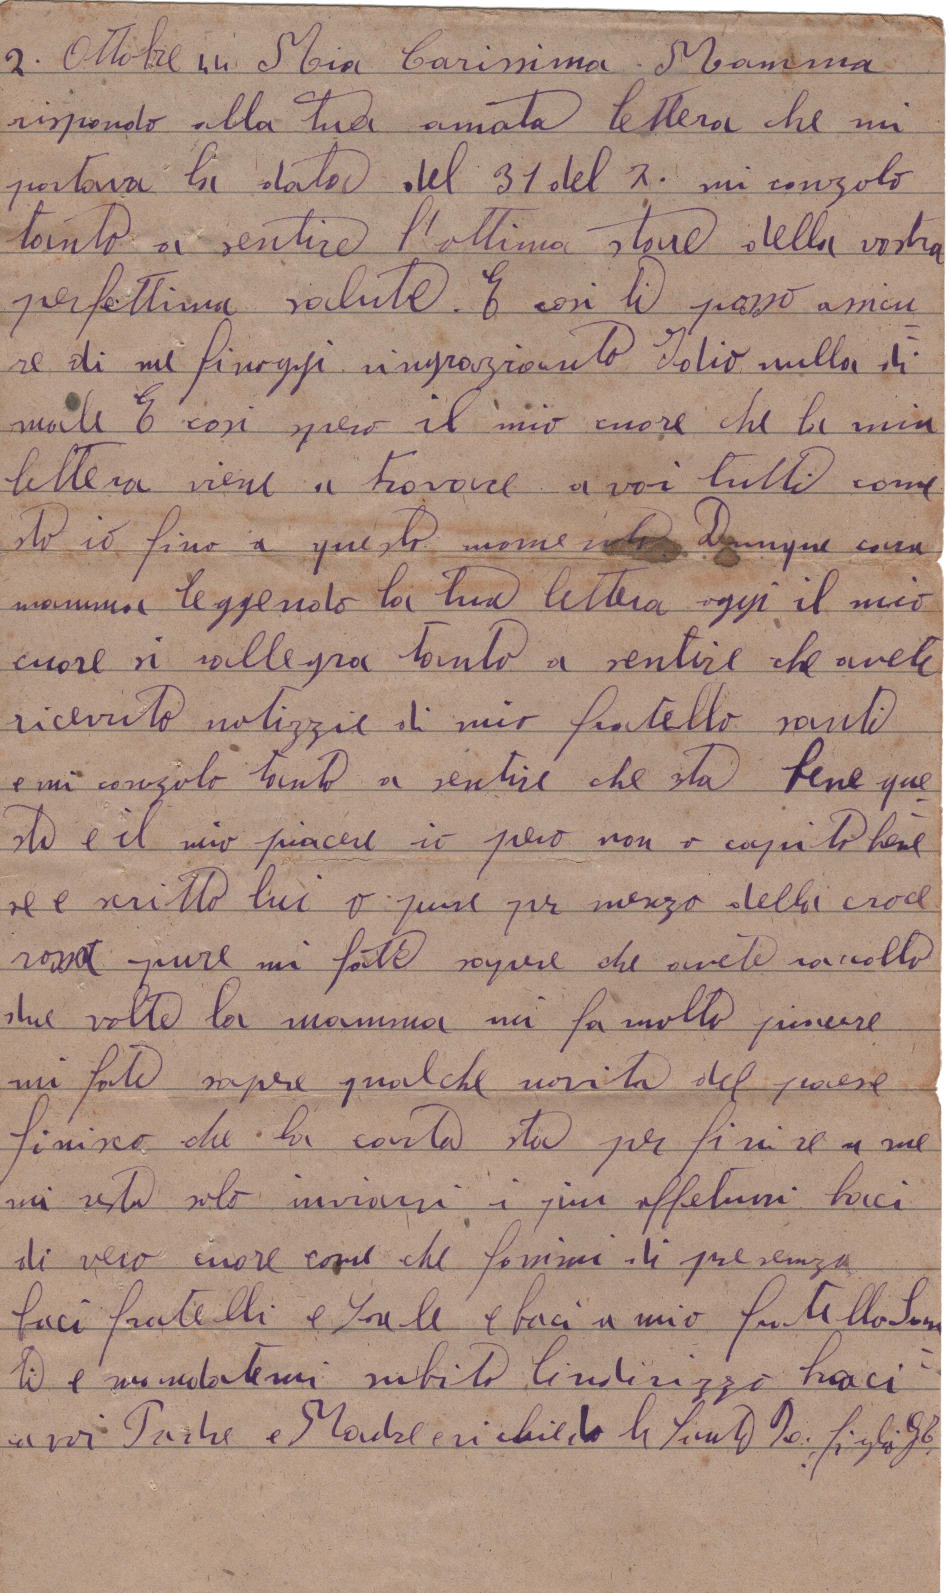 2. Ottobre 44 Mia Carissima Mamma
rispondo alla tua amata lettera che mi
portava la data del 31 del 7. mi conzolo
tanto a sentire l'ottima stare della vostra
perfettima salute. E cosi ti posso assicu
re di me finoggi ringrazianto Idio nulla di
male E cosi spero il mio cuore che la mia
lettera viene a trovare a voi tutti come
sto io fino a questo momento. Dunque cara
mamma leggendo la tua lettera oggi il mio
cuore si rallegra tanto a sentire che avete
ricevuto notizzie di mio fratello santi
e mi conzolo tanto a sentire che sta bene que
sto e il mio piacere io pero non o capito bene
se e scritto lui o pure per mezzo della croce
rossa pure mi fate sapere che avete raccolto
due volte la mamma mi fa molto piacere
mi fate sapere qualche novita del paese
finisco che la carta sta per finire a me
mi resta solo inviarsi i piu affetuusi baci
di vero cuore come che fossimi di presenza
baci fratelli e e baci a mio fratello San
ti e mandatemi subito lindirizzo baci
a voi Padre e Madre e vi chiedo la Santa figlio